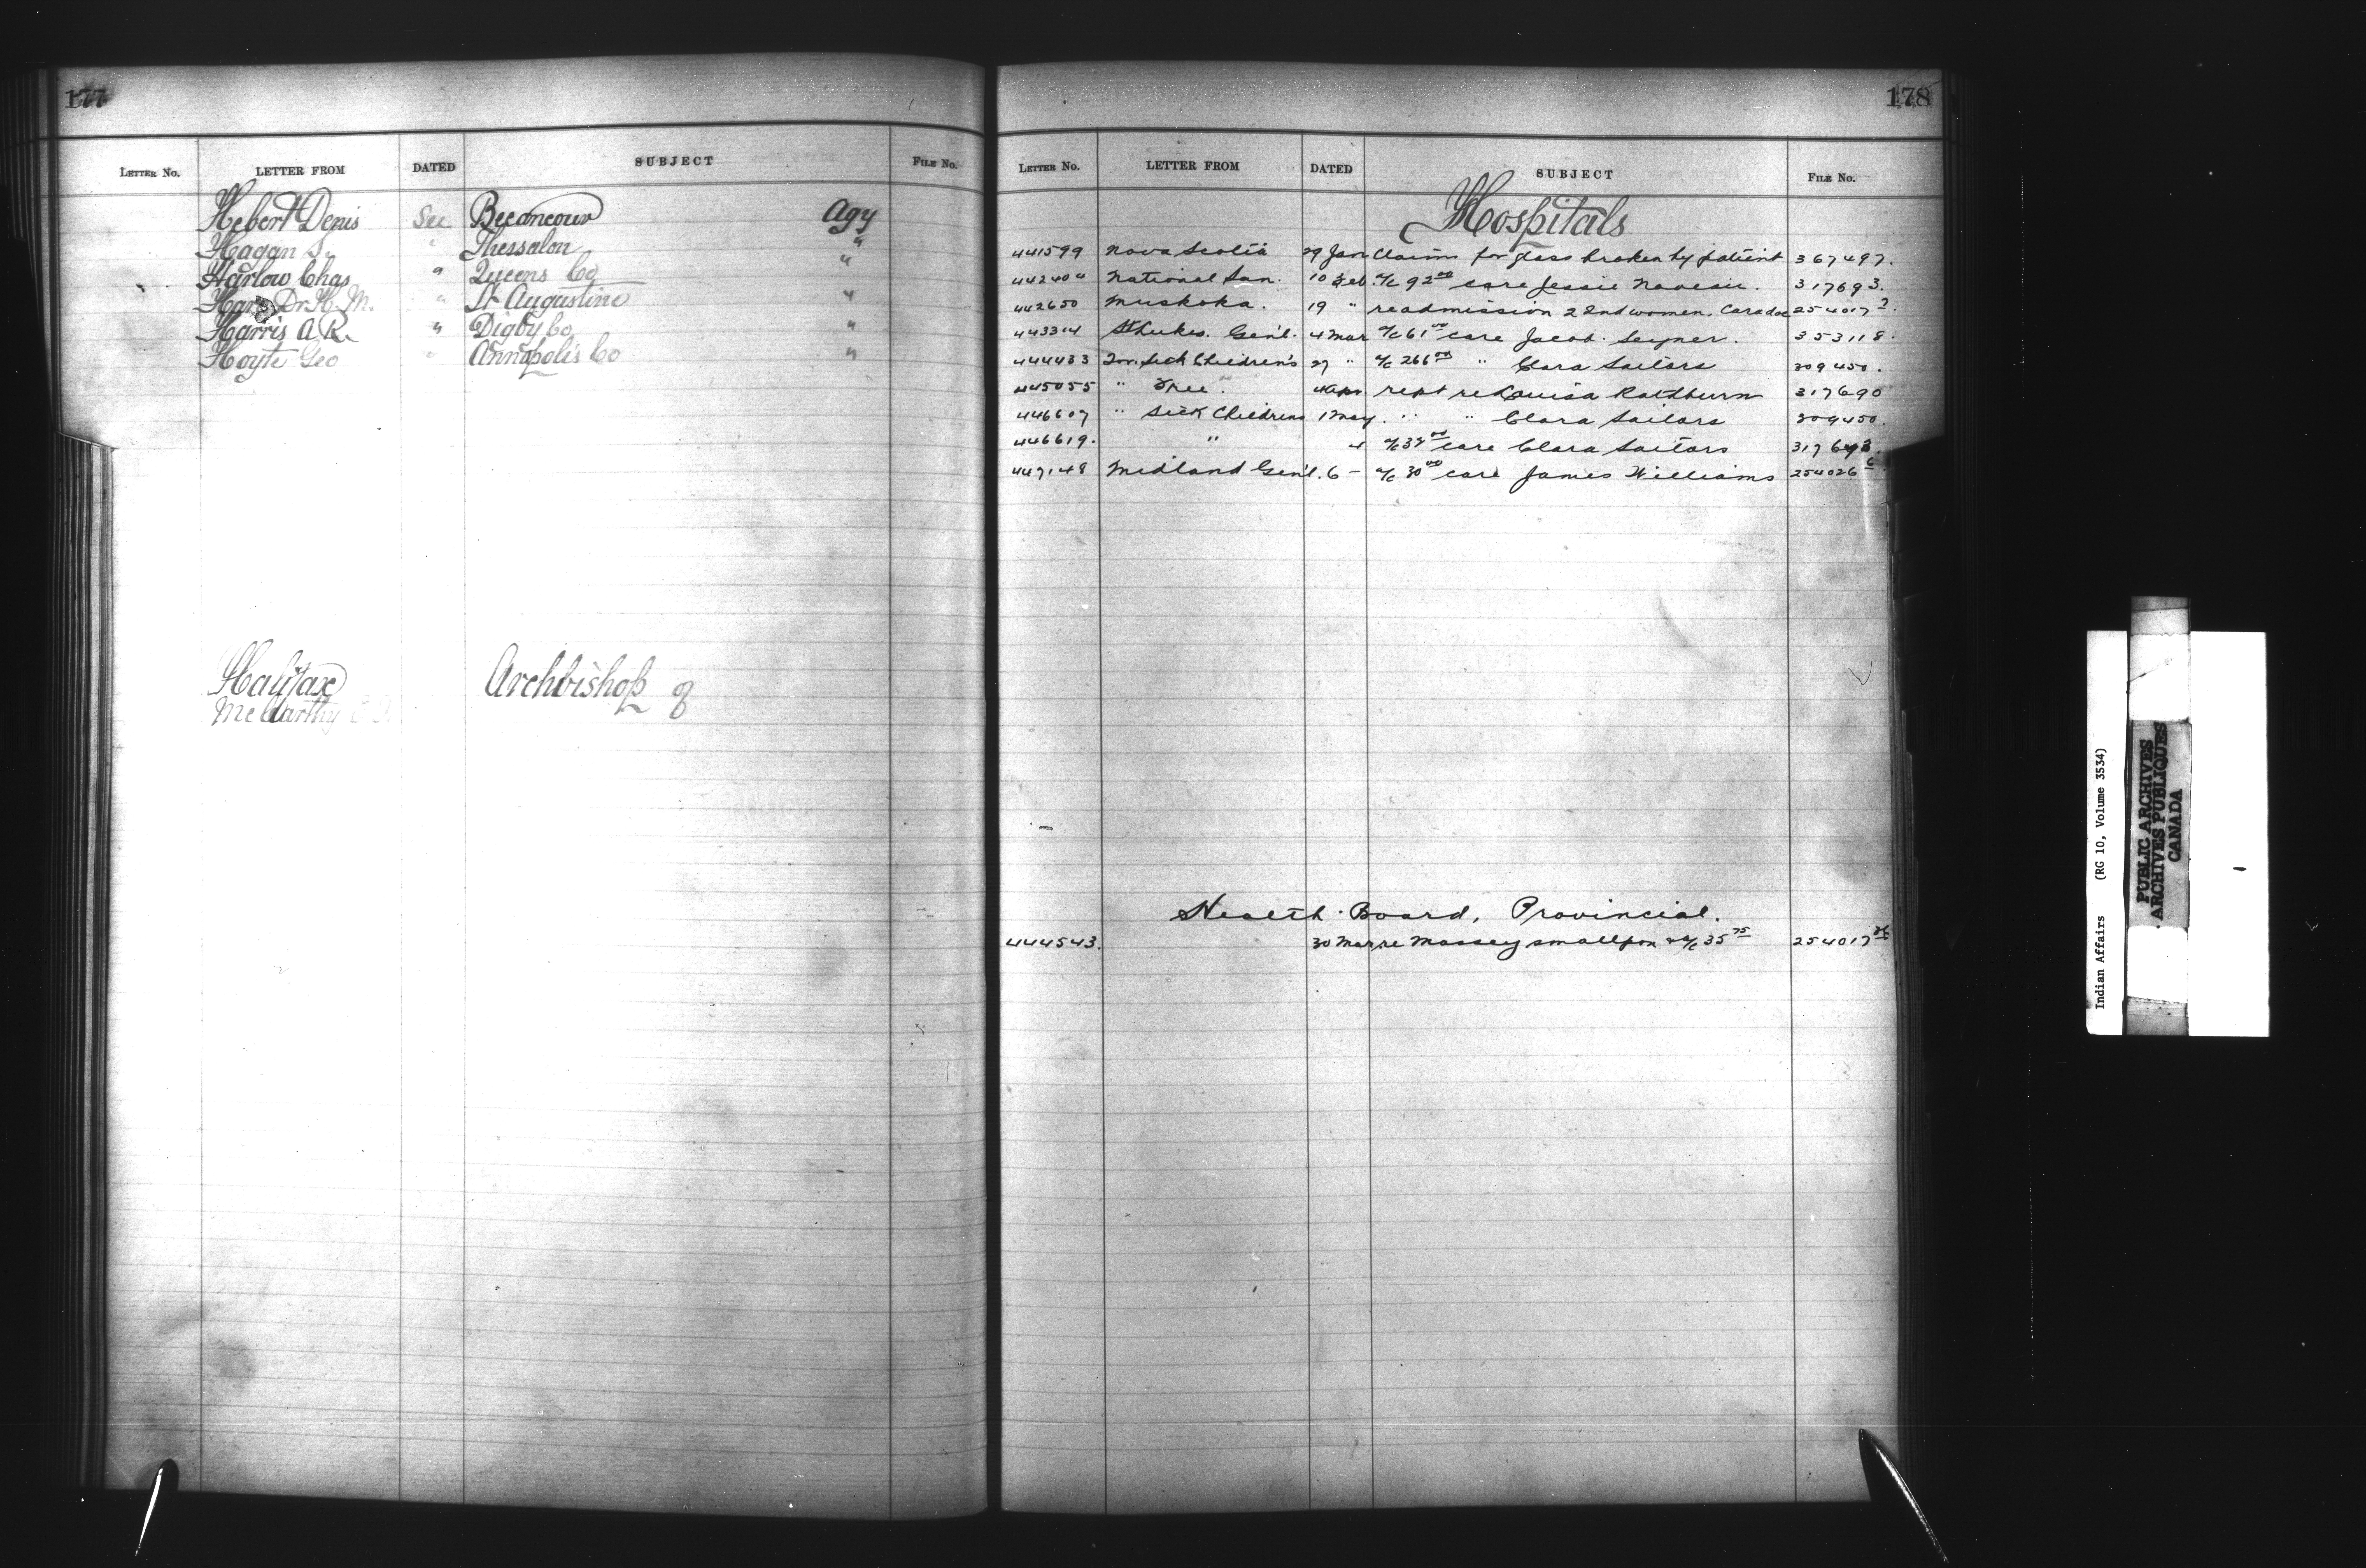 177
LETTER No. LETTER FROM DATED SUBJECT FILE No.
Hebert Denis See Becancour Agy
Hagan S. " Thessalon "
Harlow Chas " Queens Co "
Dr. H. M. " St Augustine "
Harris A. R. " Digby Co "
Hoyte Geo " Annapolis Co "
Halifax Archbishop of
McCarthy
178
LETTER No. LETTER FROM DATED SUBJECT FILE No.
Hospitals
441599 Nova Scotia 29 Jan Claims for glass broken by patient 367497.
442404 National San. 10 Feb. a/c 92 00 care Jessie 317693.
442650 Muskoka. 19 " readmission 2 Ind women. Caradoc 254017
443314 St Lukes. Gen'l. 4 Mar a/c 61 00 care Jacob 353118.
444433 Tor. Sick Children's 27 " a/c 266 00 " Clara Sailors 309450.
445055 " Free. 4 Apr. rept re Louisa Rathburn 317690
446607 " Sick Childrens 1 May. " " Clara Sailors 309450.
446619. " 4 a/c 32 00 care Clara Sailors 317693.
447148 Midland Gen'l. 6 - a/c 30 00 care James Williams 254026 6
Health Board, Provincial.
444543. 30 Mar. re Massey smallpox & a/c 35 75 254017
Indian Affairs (RG 10, Volume 3534)
PUBLIC ARCHIVES
ARCHIVES PUBLIQUES
CANADA